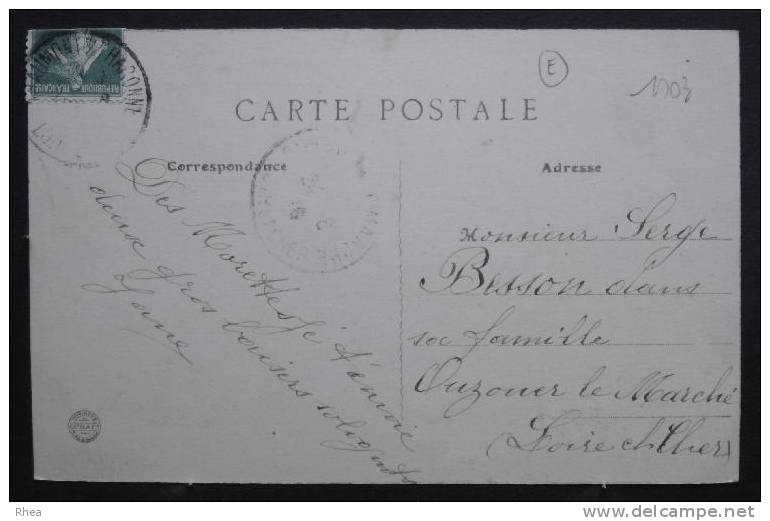 E
1903
CARTE POSTALE
REPUBLIQUE FRANÇAISE
Correspondance
Adresse
Des Morettes je t'envoie
deux gros baisers
Monsieur Serge
Besson dans
sa famille
Ouzouer le Marché
Loire et Cher
Rhea
www.delcampe.net